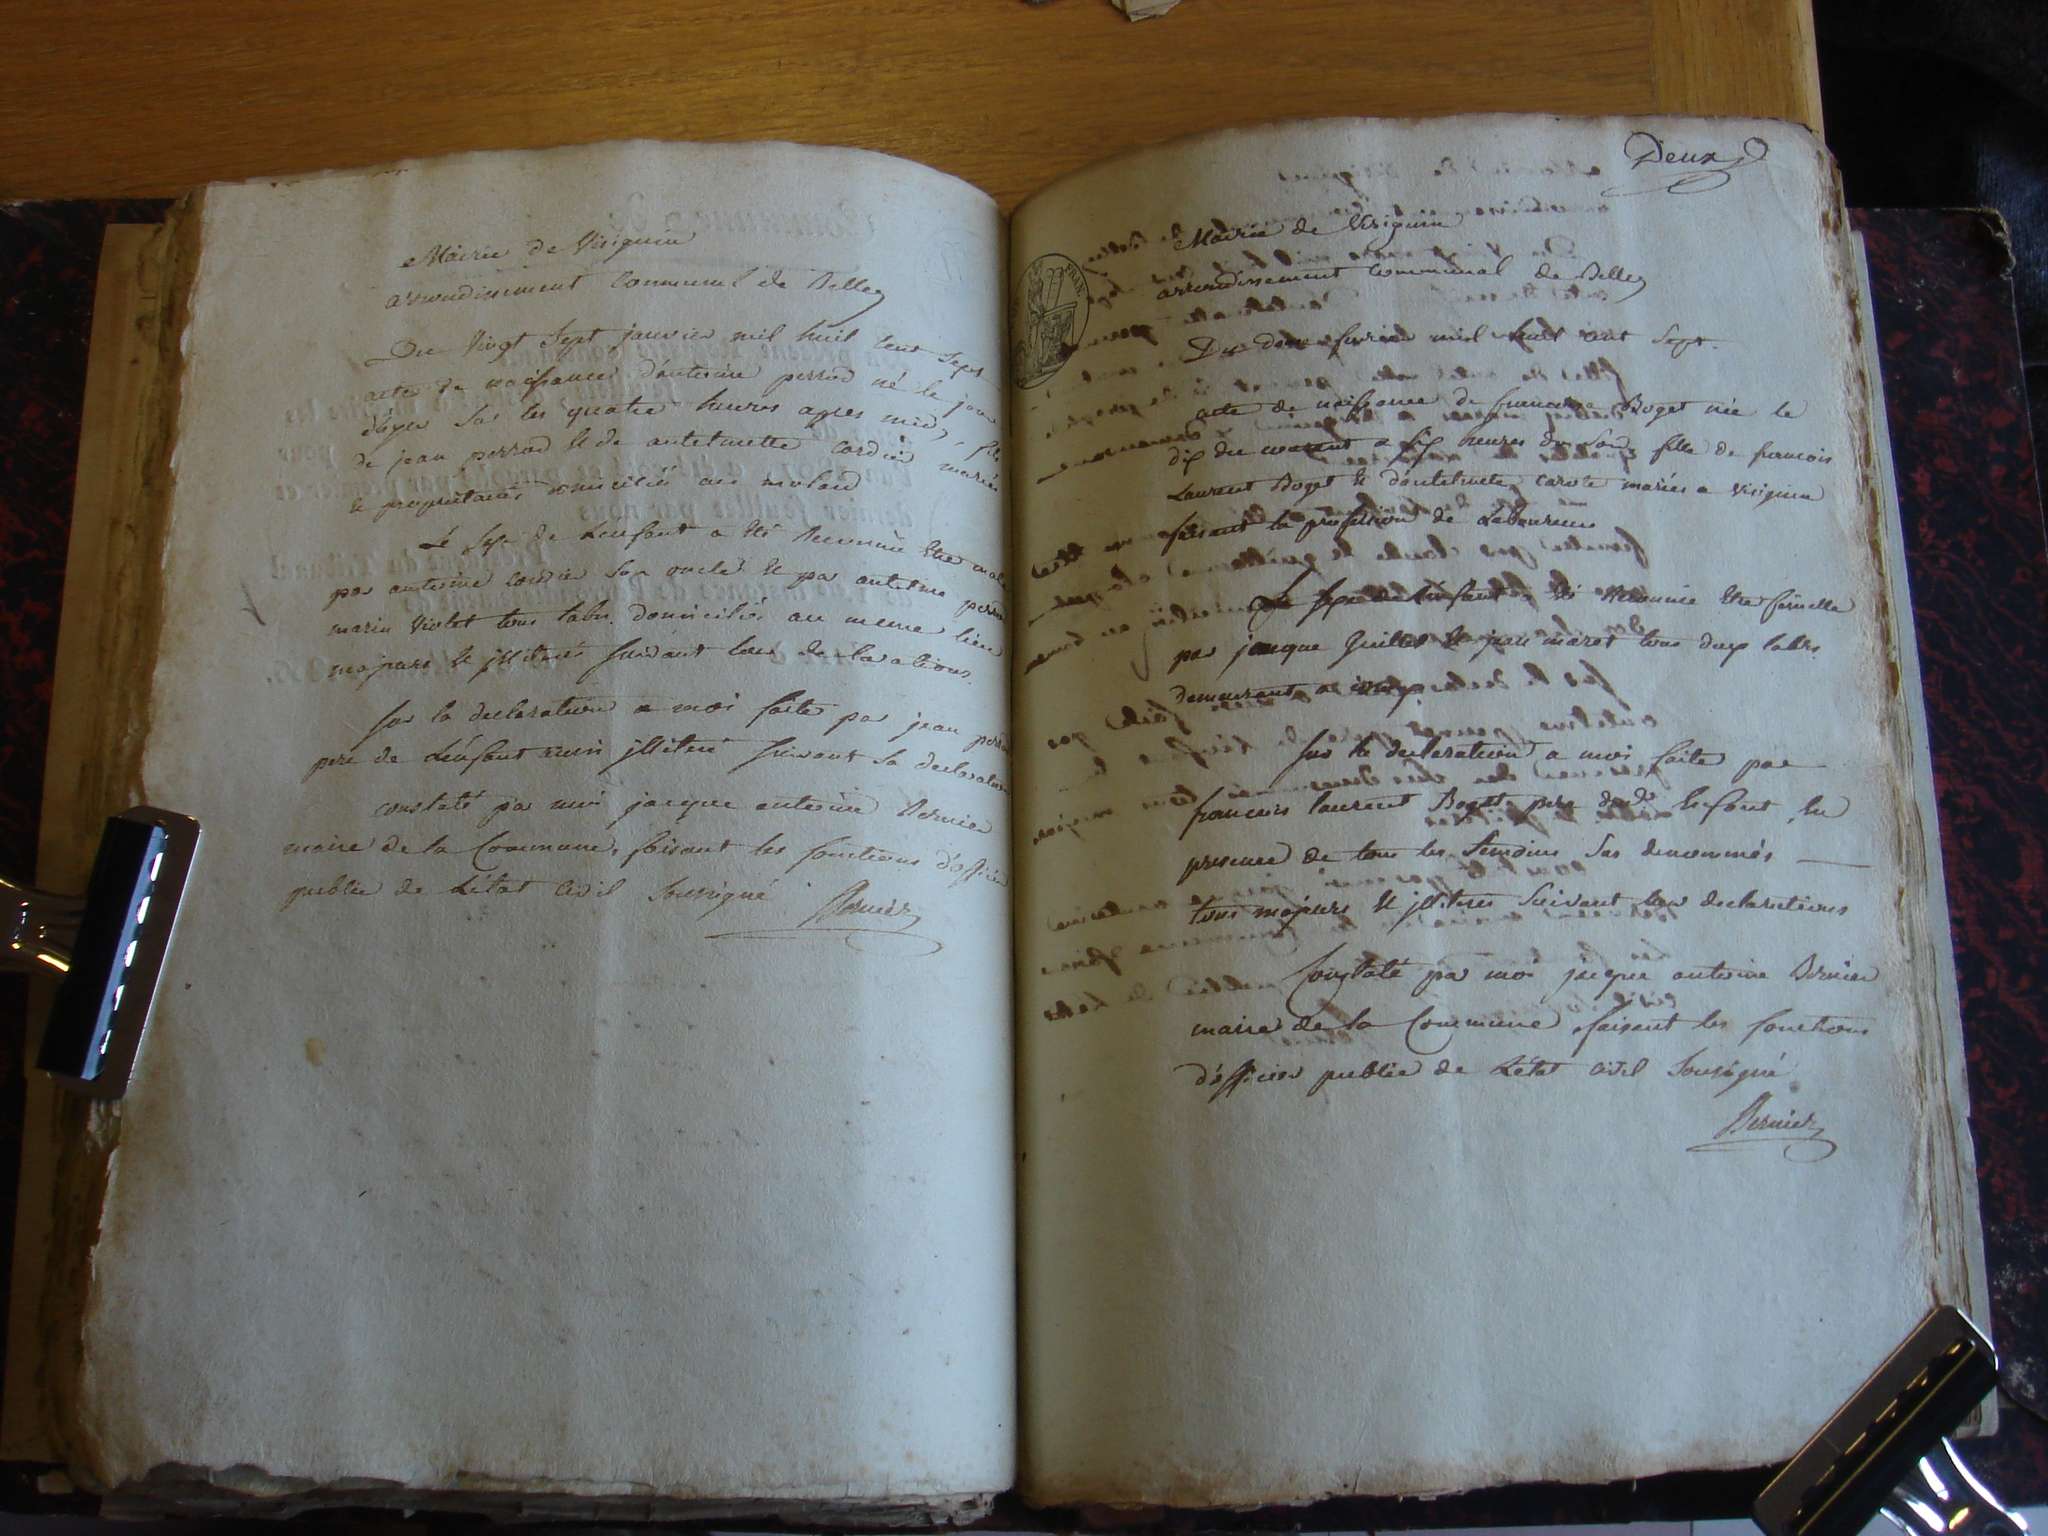 Mairie de Virignin
arrondissement Communal de Belley
Du Vingt Sept janvier mil huit Cent Sept
acte de naissance d'antoine perrod né le jour
d'hyer sur les quatre heures apres midy, fils
de jean perrod et de antelmette cordier mariés
et propriétaires domiciliés au
Le Sexe de Lenfant a été reconnu Etre male
par antoine cordier son oncle et par antelme perrod
marin Violet tous labrs. domiciliés au meme lieu
majeurs et illiterés suivant leurs declarations.
sur la declaration a moi faite par jean perrod
pere de Lénfant aussi illiteré suivant sa declaration
constaté par moi jacque antoine Bernier
maire de la Commune, faisant les fonctions d'officier
public de L'état Civil Soussigné Bernier
Deux
Mairie de Virignin
arrondissement Communal de Belley
Du fevrier mil huit cent Sept.
acte de naissance de francoise Boget née le
dix du courant a six heures du Soir, fille de francois
Laurent Boget et d'antelmette mariés a Virignin
faisant la profession de Laboureurs
Le sexe de L'énfant a été Reconnue Etre femelle
par jacque Guillet et jean maret tous deux labrs.
demeurant a
sur la declaration a moi faite par
francois laurent Boget pere de Lenfant, en
presence de tous les temoins sus denommés
tous majeurs et illiterés suivant leurs declarations
Constaté par moi jacque antoine Bernier
maire de la Commune faisant les fonctions
d'officier public de L'état Civil Soussigné
Bernier